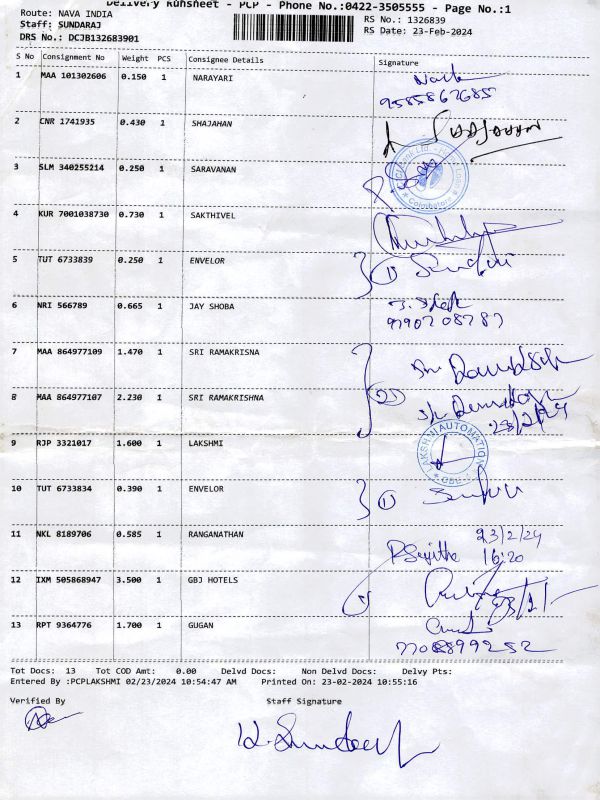 Delivery Runsheet - PCP - Phone No.:0422-3505555 - Page No.:1
Route: NAVA INDIA
RS No.: 1326839
Staff: SUNDARAJ
RS Date: 23-Feb-2024
DRS No.: DCJB132683901
S No Consignment No Weight PCS Consignee Details Signature
1 MAA 101302606 0.150 1 NARAYARI
2 CNR 1741935 0.430 1 SHAJAHAN
3 SLM 340255214 0.250 1 SARAVANAN
Coimbatore
4 KUR 7001038730 0.730 1 SAKTHIVEL
5 TUT 6733839 0.250 1 ENVELOR
6 NRI 566789 0.665 1 JAY SHOBA
7 MAA 864977109 1.470 1 SRI RAMAKRISNA
8 MAA 864977107 2.230 1 SRI RAMAKRISHNA
23/2/24
9 RJP 3321017 1.600 1 LAKSHMI
LAKSHMI AUTOMATION
10 TUT 6733834 0.390 1 ENVELOR
11 NKL 8189706 0.585 1 RANGANATHAN
23/2/24
16:20
12 IXM 505868947 3.500 1 GBJ HOTELS
13 RPT 9364776 1.700 1 GUGAN
Tot Docs: 13 Tot COD Amt: 0.00 Delvd Docs: Non Delvd Docs: Delvy Pts:
Entered By :PCPLAKSHMI 02/23/2024 10:54:47 AM Printed On: 23-02-2024 10:55:16
Verified By Staff Signature